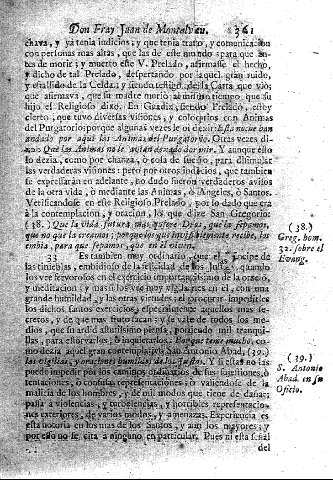 Don Fray Juan de Montalvan. 361
chava, y yà tenia indicios; y que tenia trato, y comunicacion
con personas del otro siglo, que las de este mundo para que an-
tes de morir; y muerto este V. Prelado, afirmasse el hecho,
y dicho de tal Prelado, despertando por aquel gran ruido,
y estallido de la Celda; y siendo testigo de la Carta que viò;
que afirmava, que su madre murio al mismo tiempo, que su
hijo el Religioso dixo. En Guadix, siendo Prelado, estoy
cierto, que tuvo diversas visiones, y coloquios con Animas
del Purgatorio porque algunas vezes le oì dezir: Esta noche han
andado por aquì las Animas del Purgatorio. Otras vezes di-
zia: Que las Animas no le avian dexado dormir. Y aunque esto
lo dezia, como por chança, ò cosa de sueño, para disimular
las verdaderas visiones: pero por otros indicios, que tambien
se expressaràn en adelante, no dudo fueron verdaderos avisos
de la otra vida, ò mediante las Animas, ò Angeles, ò Santos.
Verificandose en este Religioso Prelado, por lo dado que era
à la contemplacion, y oracion, los que dize San Gregorio:
(38.) Que la vida futura, mas quiere Dios, que la sepamos,
que no que la creamos; porque los que invisiblemente recibe, los
embia, para que sepamos, que en èl viven.
(38.)
Greg. hom.
32. sobre el
Evang.
33 Es tambien muy ordinario, que el Principe de
las tinieblas, embidioso de la felicidad de los Justos, quando
los vee fervorosos en el exercicio importantissimo de la oracion,
y meditacion; y mas si los vee muy
grande humildad, y las otras virtudes; el procurar impedirles
los dichos santos exercicios, especialmente aquellos mas se-
cretos, y de que mas fruto sacan; y se vale de todos los me-
dios, que su ardid astutissimo piensa, pudiendo mil tranqui-
llas, para estorvarlos, è inquietarlos. Porque teme mucho, co-
mo dezia aquel gran contemplativo San Antonio Abad, (39.)
las vigilias, y oraciones humildes de los Justos. Y si estas no las
puede impedir por los caminos ordinarios de sus sugestiones, ò
tentaciones, ò confusas representaciones; ò valiendose de la
malicia de los hombres, y de mil modos que tiene de dañar:
passa à violencias, y turbulencias, y horribles representacio-
nes exteriores, de varios modos, y à amenazas. Experiencia es
esta notoria en los mas de los Santos, y aun los mayores; y
por esso no se cita à ninguno en particular. Pues ni esta señal
(39.)
S. Antonio
Abad. en su
Oficio.
del